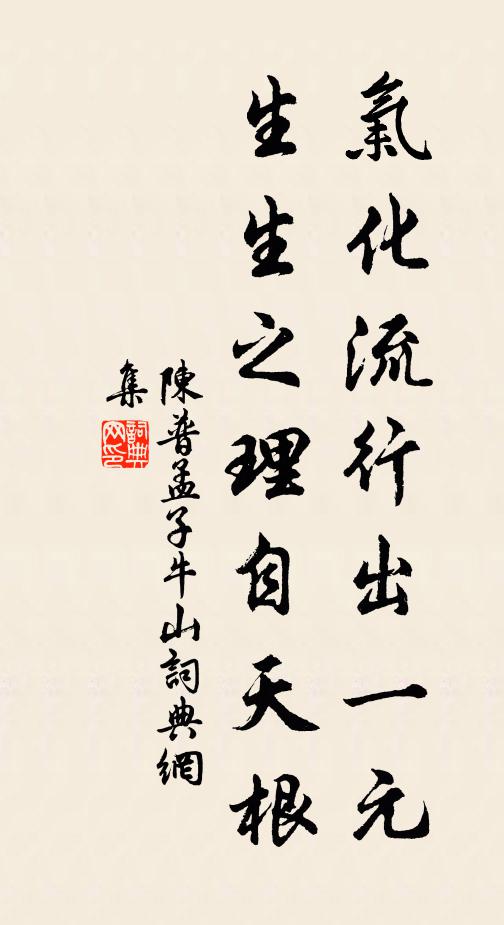 氣化流行出一元
生生之理自天根
陳普孟子牛山詞典網
集
詞典網印